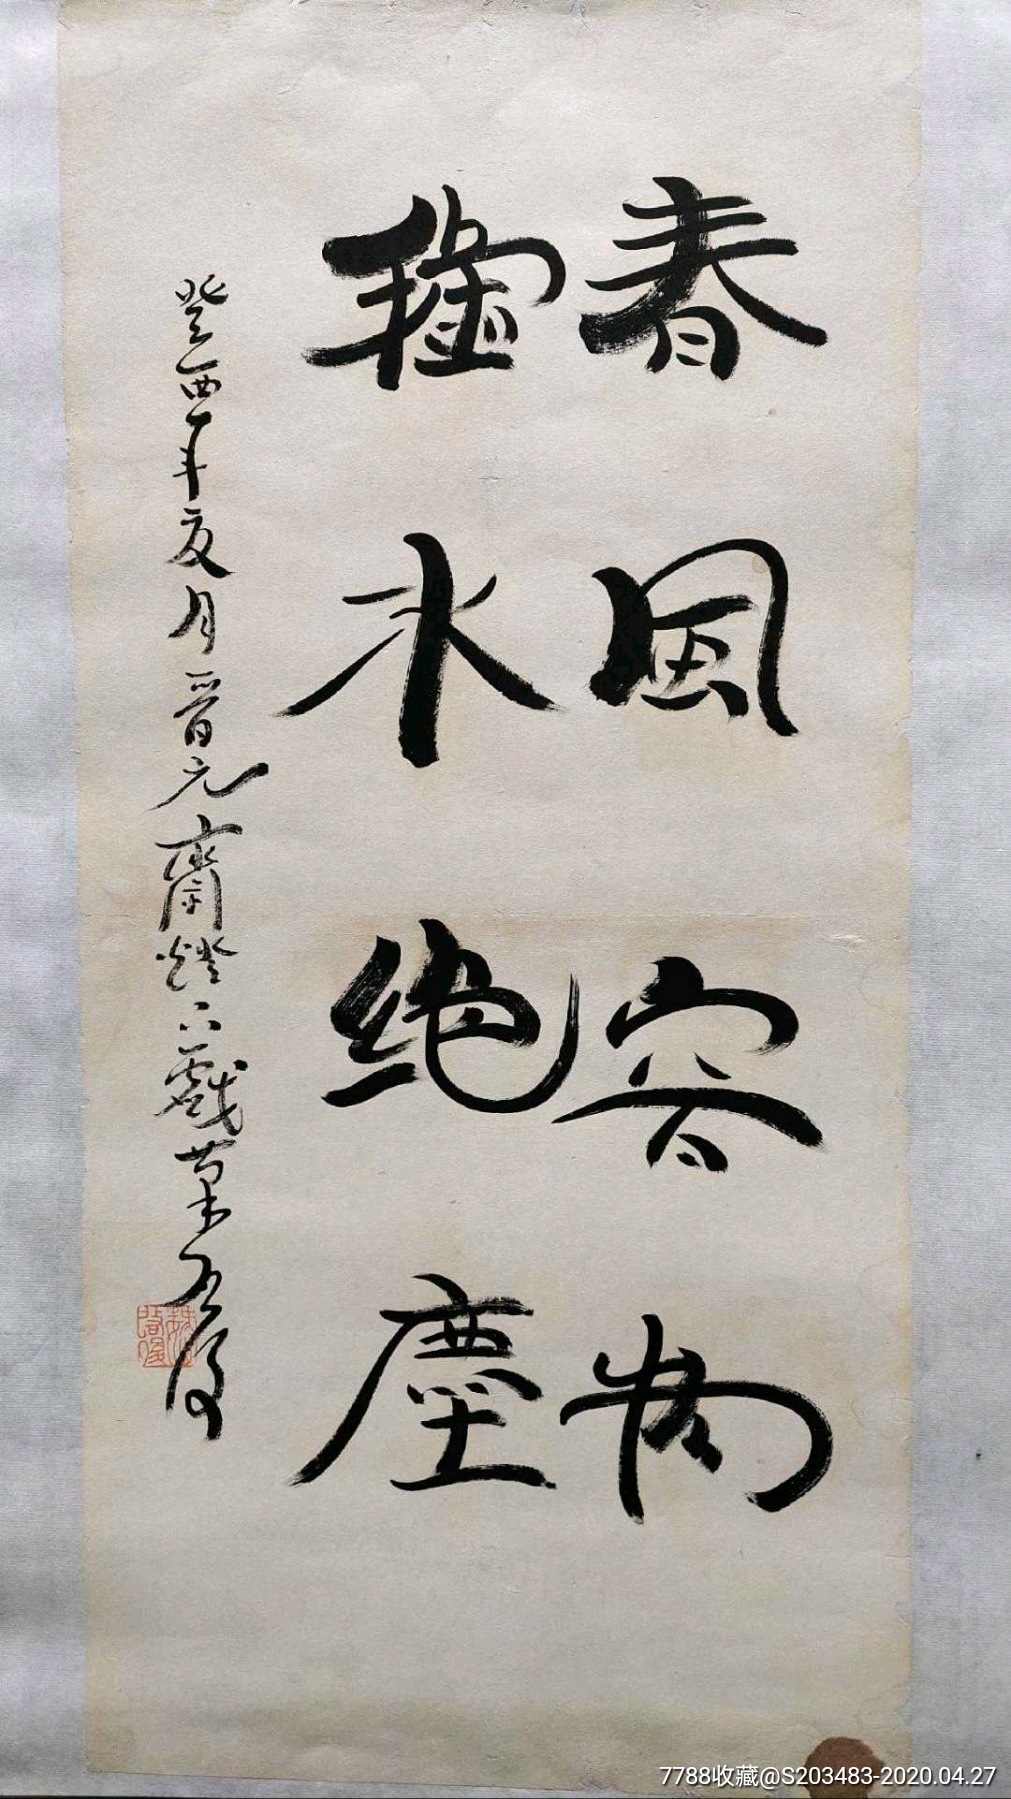 春風容物
秋水絕塵
癸酉年夏月晋元齋燈下戲草啟後
7788收藏@S203483-2020.04.27